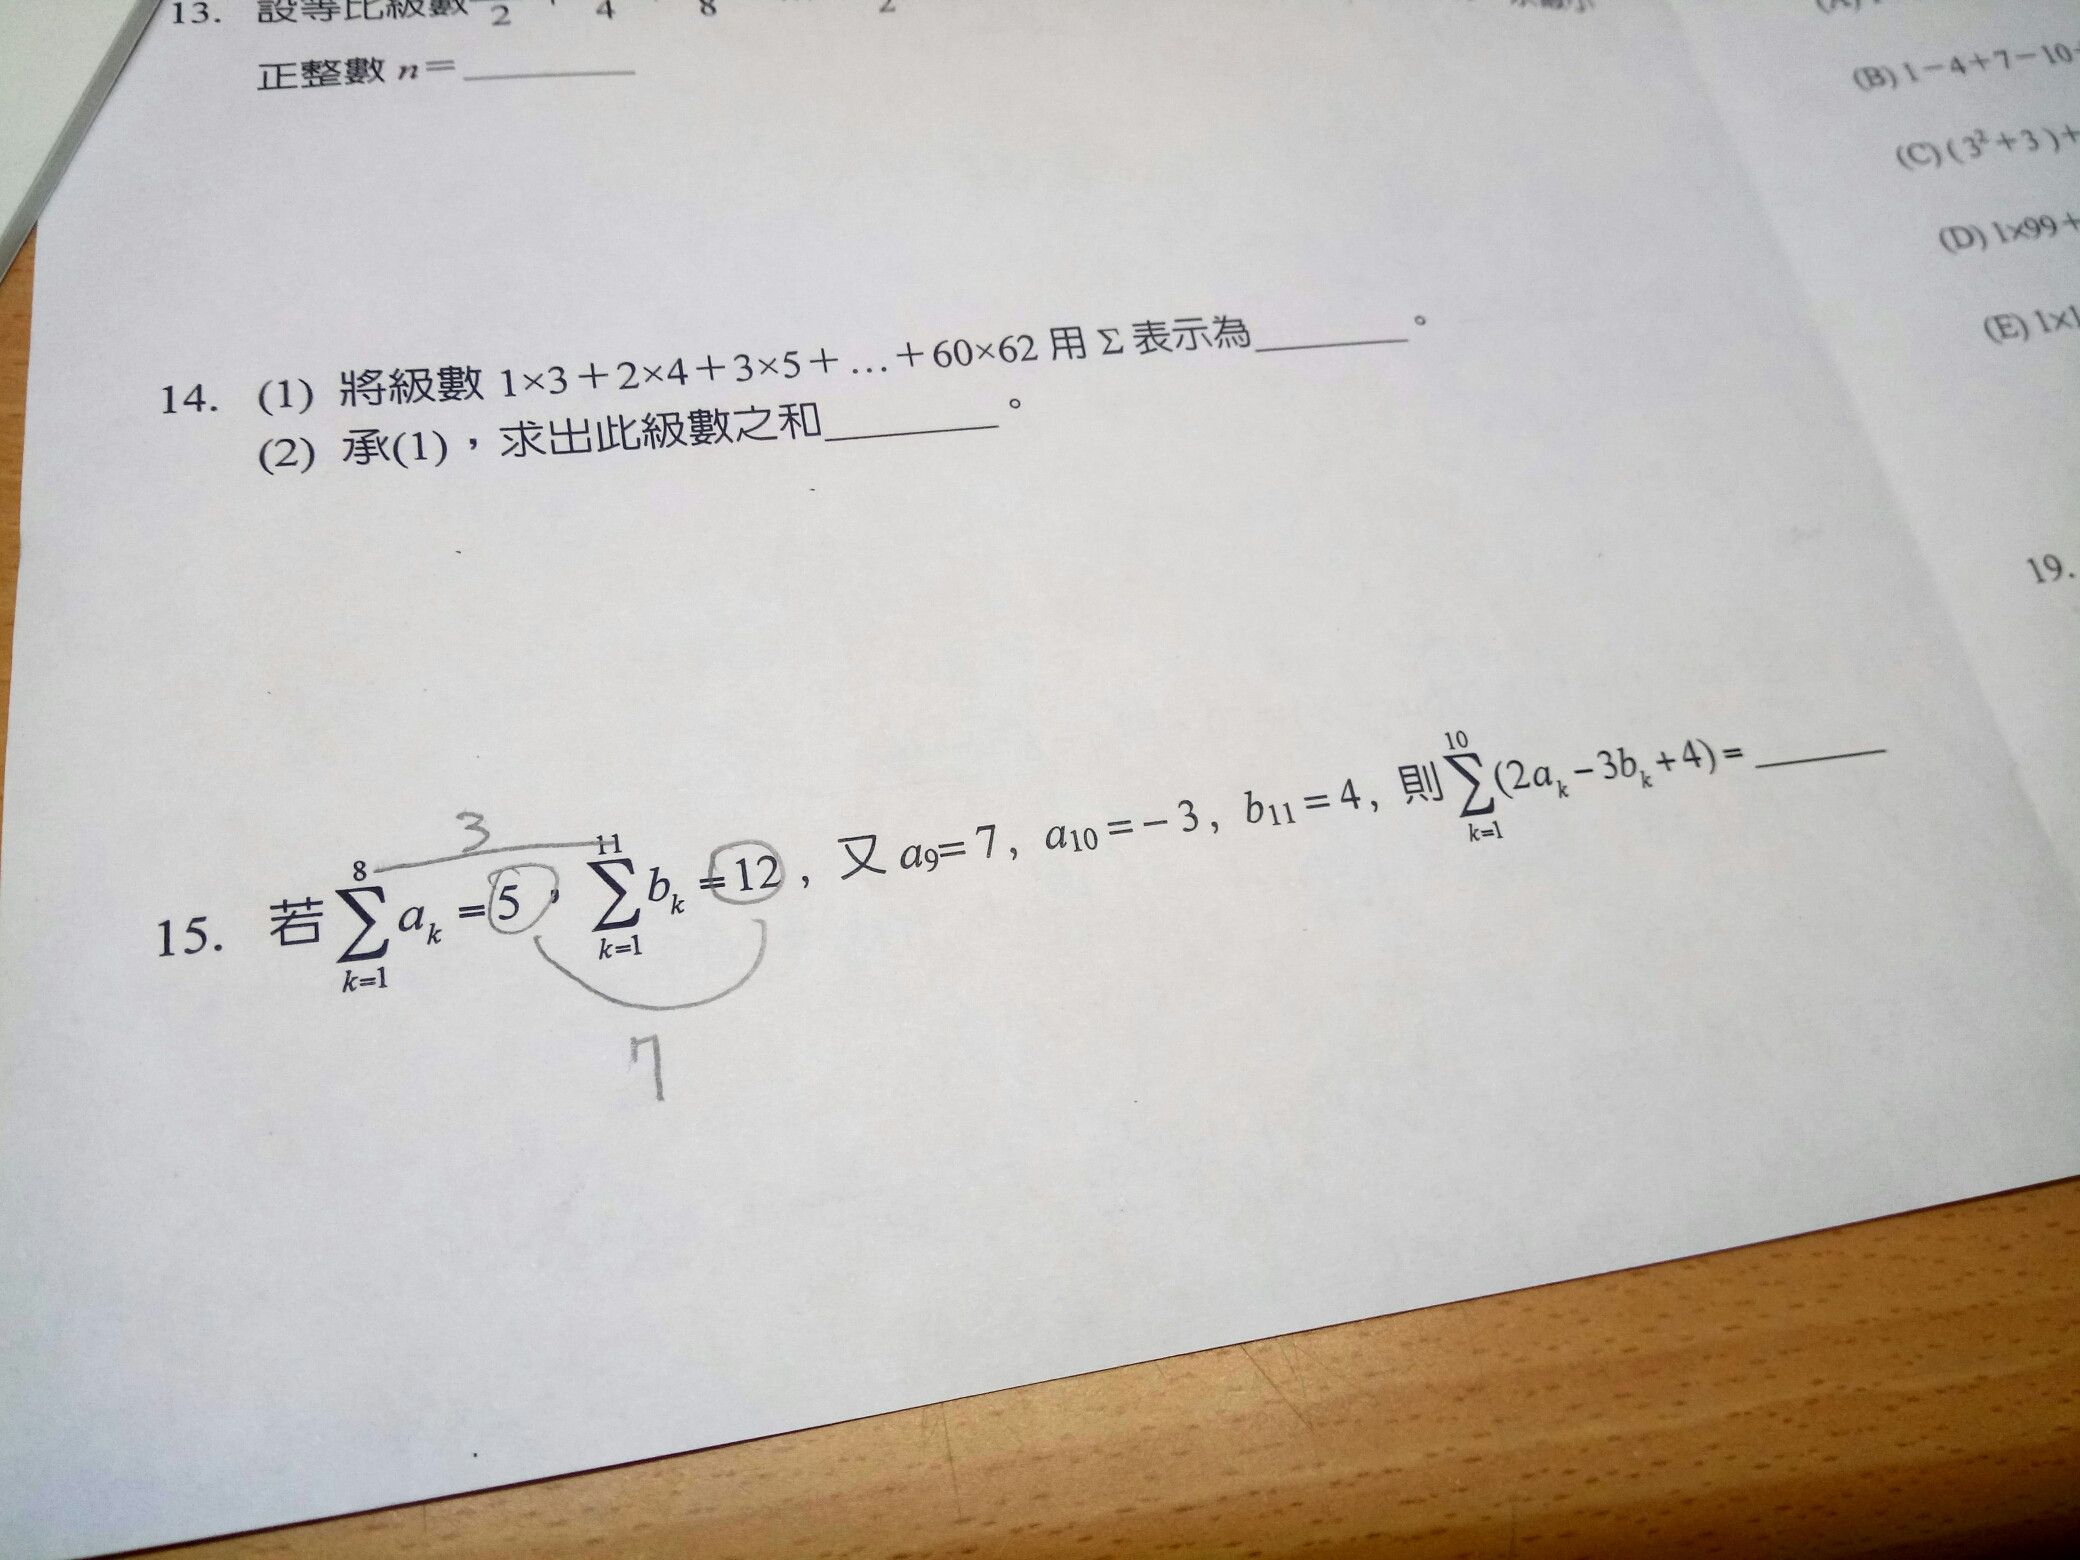 13. 設等比級數 2 + 4 8 2
正整數 n=
(B) 1－4＋7－10
(C) (3²＋3)＋
(D) 1×99＋
(E) 1×1
14. (1) 將級數 1×3＋2×4＋3×5＋…＋60×62 用 Σ 表示為______。
(2) 承(1)，求出此級數之和______。
19.
3
15. 若 \sum_{k=1}^{8} a_k = 5, \sum_{k=1}^{11} b_k = 12, 又 a_9 = 7, a_{10} = -3, b_{11} = 4, 則 \sum_{k=1}^{10} (2a_k - 3b_k + 4) = ______
7